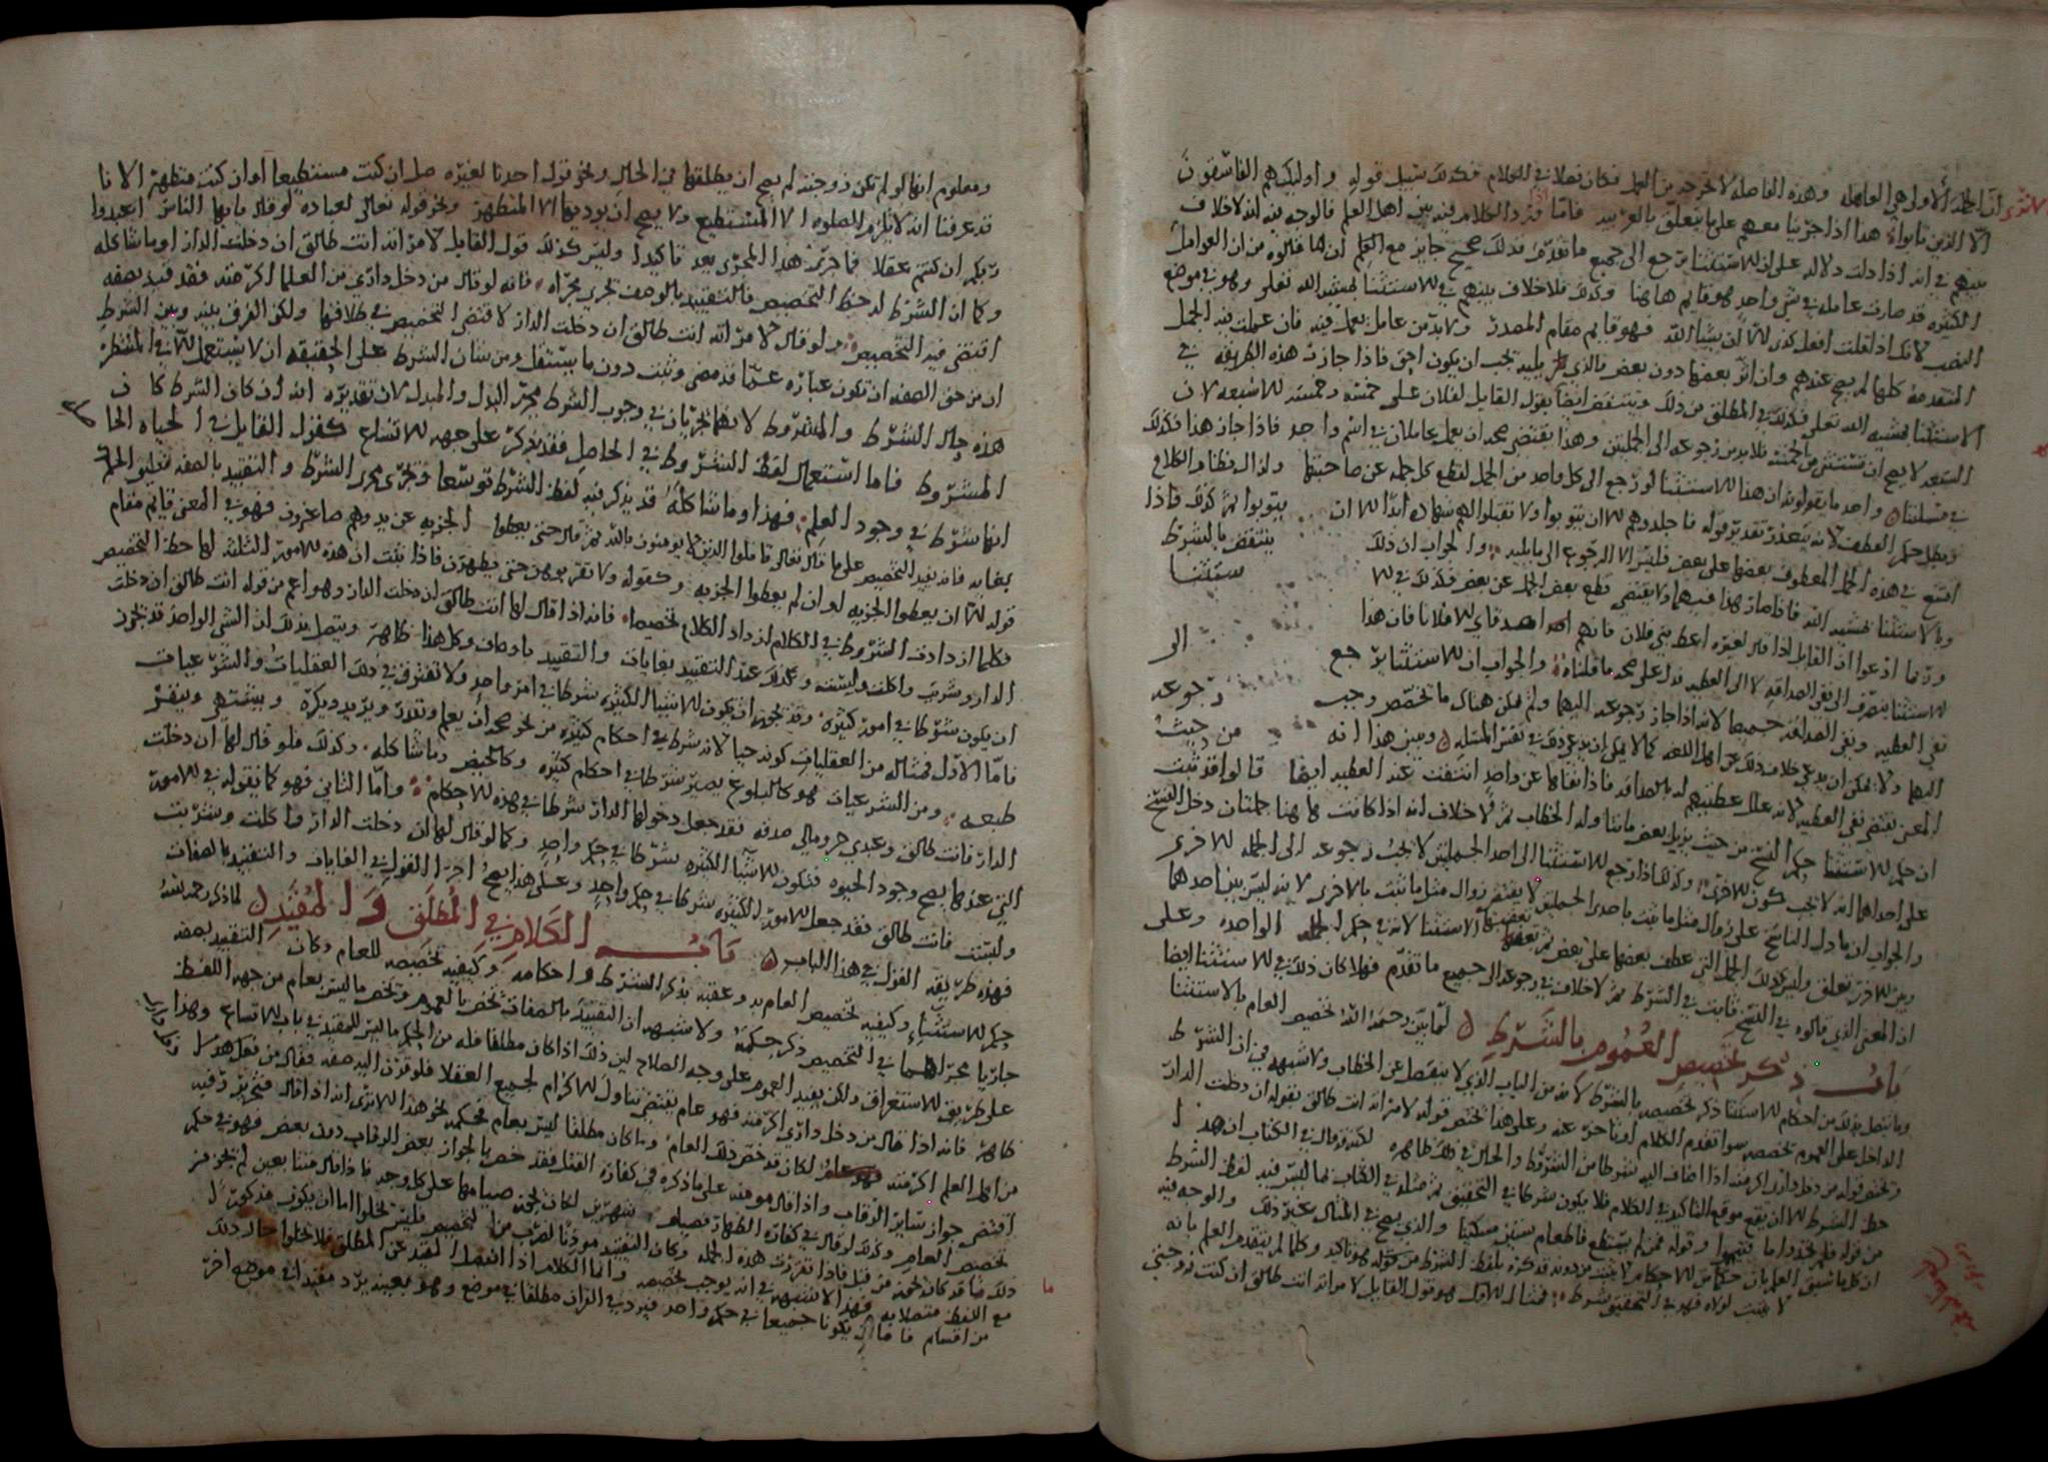 لان الجملة الاولى هي العاملة وهذه الفاصلة لا تخرجه من العمل فكان فعلا في الكلام فكذلك سبيل قوله واوليك هم الفاسقون
الا الذين تابوا هذا اذا جرينا معهم على ما يتعلق بالعربية فاما الكلام فيه بين اهل العلم فالوجه فيه انه لا خلاف
بينهم في انه اذا دلت دلالة على ان الاستثنا يرجع الى جميع ما تقدم فذلك صحيح جايز مع العلم
الكثيره قد صارت عاملة في شي واحد فهو قايم هاهنا وكذلك فلا خلاف بينهم في الاستثنا بمشية الله تعلى وهو في موضع
النصب لانك اذا قلت افعل كذى الا ان يشا الله فهو قايم مقام المصدر ولا بد من عامل يعمل فيه فان عملت فيه الجمل
المتقدمة كلها لم يصح عندهم وان اثر بعضها دون بعض فالذي يليه يجب ان يكون احق فاذا جازت هذه الطريقة في
الاستثنا بمشية الله تعلى فكذلك في المطلق من ذلك وينتقض ايضا بقول القايل لفلان على خمسة وخمسة الا سبعة لان
السبعة لا يصح ان تستثنى من الخمسة فلا بد من رجوعه الى الجملتين وهذا يقتضي صحة ان يعمل عاملان في اسم واحد فاذا جاز هذا فكذلك
في مسلتنا واحد ما يقولونه ان هذا الاستثنا لو رجع الى كل واحد من الجمل لقطع كل جملة عن صاحبتها ولزال نظام الكلام
ويبطل حكم العطف لانه يتعذر تقدير قوله فاجلدوهم الا ان يتوبوا ولا تقبلوا لهم شهادة ابدا الا ان يتوبوا ثم كذلك فاذا
امتنع في هذه الجمل المعطوف بعضها على بعض فليس الا الرجوع الى ما يليه والجواب ان ذلك ينتقض بالشرط
وبالاستثنا بمشية الله فاذا جاز هذا فيهما ولا يقتضي قطع بعض الجمل عن بعض فكذلك في الاستثنا
وربما ادعوا ان القايل اذا قال لغيره اعط بني فلان فانهم اصدقاي الا فلانا فان هذا
الاستثنا ينصرف الى نفي الصداقه لا الى العطيه فدل على صحه ما قلناه والجواب ان الاستثنا يرجع الى
نفي العطيه ونفي الصداقة جميعا لانه اذا جاز رجوعه اليهما ولم يكن هناك ما يخصص وجب رجوعه
اليهما ولا يمكن ان يدعى خلاف ذلك عن اهل اللغه كما لا يمكن ان يدعى ذلك في نفس المسله ويبين هذا انه من حيث
المعنى يقتضي نفي العطيه لانه علل عطيتهم له بالصداقه فاذا نفاها عن واحد انتفت عنه العطيه ايضا قالوا قد ثبت
ان حكم الاستثنا حكم النسخ من حيث يزيل بعض ما تناوله الخطاب ثم لا خلاف انه اذا كانت هاهنا جملتان دخل النسخ
على احداهما انه لا يجب كونه للاخرى وكذلك اذا رجع الاستثنا الى احد الجملتين لا يجب رجوعه الى الجملة الاخرى
والجواب ان ما دل الناسخ على زوال مثل ما ثبت باحدى الجملتين لا يقتضي زوال مثل ما ثبت بالاخرى لانه ليس بين احدهما
وبين الاخرى تعلق وليس كذلك الجمل التي عطف بعضها على بعض ثم تعقبها الاستثنا لانه في حكم الجمله الواحده وعلى
ان المعنى الذي قالوه في النسخ ثابت في الشرط ثم لا خلاف في رجوعه الى جميع ما تقدم فهلا كان ذلك في الاستثنا ايضا
باب ذكر تخصيص العموم بالشرط لما بين رحمه الله تخصيص العام بالاستثنا
وما يتصل بذلك من احكام الاستثنا ذكر تخصيصه بالشرط لانه من الباب الذي لا ينفصل عن الخطاب ولا شبهه في ان الشرط
الداخل على العموم تخصصه سوا تقدم الكلام او تاخر عنه وعلى هذا يختص قوله لامراته انت طالق بقوله ان دخلت الدار
ويختص قوله من دخل داري اكرمته اذا اضاف اليه شرطا من الشروط والحال في ذلك ظاهره لكنه قد قال في الكتاب ان هذا
حظ الشرط الا ان يقع موقع التاكيد في الكلام فلا يكون شرطا في التحقيق ثم مثله في الكتاب بما ليس فيه لفظ الشرط
من قوله فلم تجدوا ما فتيمموا وقوله فمن لم يستطع فاطعام ستين مسكينا والذي يصح في المثال غير ذلك والوجه فيه
ان كل ما سبق العلم بان حكما من الاحكام لا يثبت من دونه قد ذكره بلفظ الشرط من قوله فهو تاكيد وكلما لم يتقدم العلم بانه
لا يثبت لولاه فهو في التحقيق شرط فمثال الاول هو قول القايل لامراته انت طالق ان كنت زوجتي
ومعلوم انها لو لم تكن زوجته لم يصح ان يطلقها في الحال ونحو قول احدنا لغيره صل ان كنت مستطيعا او ان كنت متطهرا لانا
قد عرفنا انه لا يلزم الصلوه الا المستطيع ولا يصح ان يوديها الا المتطهر ونحو قوله تعالى لعباده لو قال يا ايها الناس اعبدوا
ربكم ان كنتم عقلا فما جرى هذا المجرى يعد تاكيدا وليس كذلك قول القايل لامراته انت طالق ان دخلت الدار او ما شاكله
وكما ان الشرط له حظ التخصيص فالتقييد بالوصف يجري مجراه فانه لو قال من دخل داري من العلما اكرمته فقد قيد بصفه
اقتضى فيه التخصيص ولو قال لامراته انت طالق ان دخلت الدار لاقتضى التخصيص في طلاقها ولكن الفرق بينه وبين الشرط
ان من حق الصفه ان تكون عباره عما قد مضى وثبت دون ما يستقبل ومن شان الشرط على الحقيقه ان لا يستعمل الا في المنتظر
هذه حال الشرط والمشروط لانهما يجريان في وجوب الشرط مجرى البدل والمبدل لان تقديره انه ان كان الشرط كان
المشروط فاما استعمال لفظ الشرط في الحاصل فقد يذكر على جهه الاتساع كقول القايل في الحياه
انها شرط في وجود العلم فهذا وما شاكله قد يذكر فيه لفظ الشرط توسعا وتجرى مجرى الشرط والتقييد بالصفه تعليق الحكم
بغايه فانه يفيد التخصيص على ما قال تعالى قاتلوا الذين لا يومنون بالله ثم قال حتى يعطوا الجزيه عن يد وهم صاغرون فهو في المعنى قايم مقام
قوله الا ان يعطوا الجزيه او ان لم يعطوا الجزيه وكقوله ولا تقربوهن حتى يطهرن فاذا ثبت ان هذه الامور الثلثه لها حظ التخصيص
وكلما ازدادت الشروط في الكلام ازداد الكلام تخصيصا فانه اذا قال لها انت طالق ان دخلت الدار وهو اعم من قوله انت طالق ان دخلت
الدار وشربت واكلت ولبست وكذلك عند التقييد بغايات والتقييد باوصاف وكل هذا ظاهر ويتصل بذلك ان الشي الواحد قد يجوز
ان يكون شرطا في امور كثيره وقد يجوز ان يكون الاشيا الكثيره شرطا في امر واحد ولا تفترق في ذلك العقليات والشرعيات
فاما الاول فمثاله من العقليات كونه حيا لانه شرط في احكام كثيره من نحو صحه ان يعلم ويقدر ويريد ويكره ويشتهي وينفر
طبعه ومن الشرعيات فهو كالبلوغ يصير شرطا في احكام كثيره وكالحيض وما شاكله وكذلك فلو قال لها ان دخلت
الدار فانت طالق وعبدي حر ومالي صدقه فقد جعل دخولها الدار شرطا في هذه الاحكام واما الثاني فهو كما نقوله في الامور
التي عندها يصح وجود الحيوه فتكون الاشيا الكثيره شرطا في حكم واحد وكما لو قال لها ان دخلت الدار واكلت وشربت
ولبست فانت طالق فقد جعل الامور الكثيره شرطا في حكم واحد وعلى هذا يصح اجرا القول في الغايات والتقييد بالصفات
فهذه طريقه القول في هذا الباب باب الكلام في المطلق والمقيد لما ذكر رحمه الله
حكم الاستثنا وكيفيه تخصيص العام به وعقبه بذكر الشرط واحكامه وكيفيه تخصيصه للعام وكان التقييد بصفه
جاريا مجراهما في التخصيص ذكر حكمه ولا شبهه ان التقييد بالصفات يخص بالعموم ويخص ما ليس بعام من جهه اللفظ
على طريق الاستغراق ولكن يفيد العموم على وجه الصلاح لان ذلك اذا كان مطلقا فله من الحكم ما ليس للمقيد في باب الاتساع وهذا
ظاهر فانه اذا قال من دخل داري اكرمته فهو عام يقتضي تناول الاكرام لجميع العقلا فلو قرن اليه صفه فقال من فعل هذا
من اهل العلم اكرمته لكان قد خص ذلك العام وما كان مطلقا ليس بعام فحكمه نحو هذا الا ترى انه اذا قال فتحرير رقبه
اقتضى جواز ساير الرقاب واذا قال مومنه على ما ذكره في كفاره القتل فقد خص بالجواز بعض الرقاب دون بعض فهو في حكم
تخصيص العام وكذلك لو قال في كفاره الظهار فصيام شهرين لكان يجوز صيامهما على كل وجه فاذا قال متتابعين لم يجز من
ذلك ما قد كان يجوز من قبل فاذا تقررت هذه الجمله وكان التقييد موذنا لضرب من التخصيص فليس يخلوا اما ان يكون مذكورا
مع اللفظ متصلا به فهذا لا شبهه في انه يوجب تخصصه واما الكلام اذا انفصل المقيد عن المطلق فلا يخلوا حال ذلك
من اقسام فاما ان يكونا جميعا في حكم واحد فيرد في القران مطلقا في موضع وهو بعينه يرد مقيدا في موضع اخر